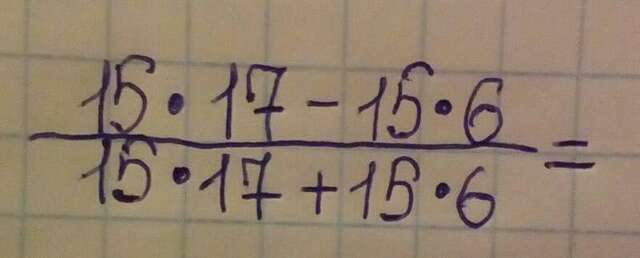 15·17-15·6
=
15·17+15·6